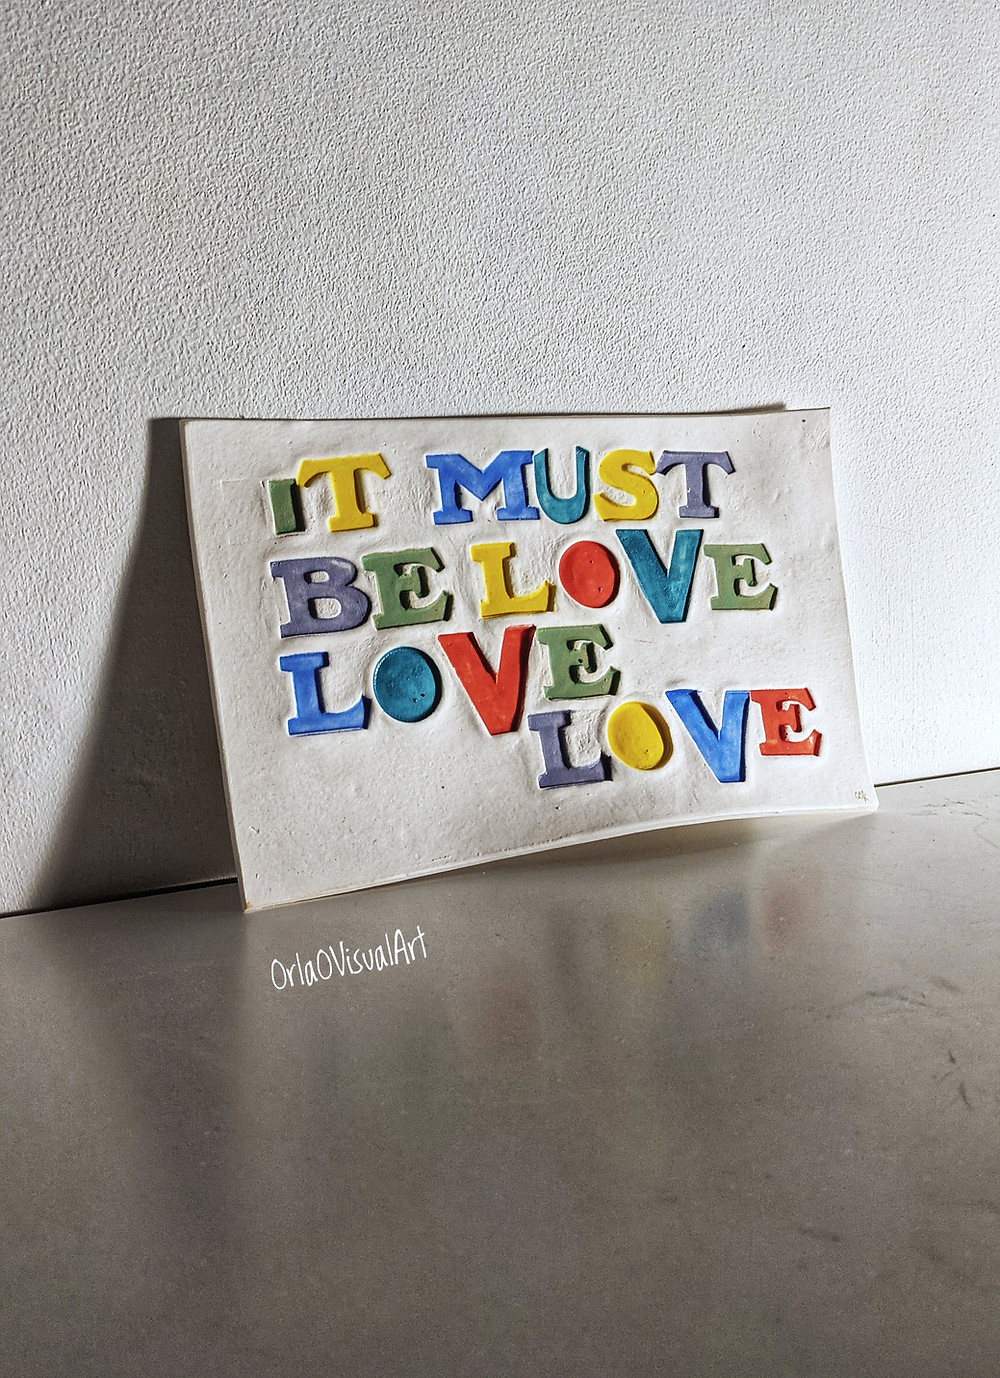 IT MUST
BE LOVE
LOVE
LOVE
OrlaOVisualArt